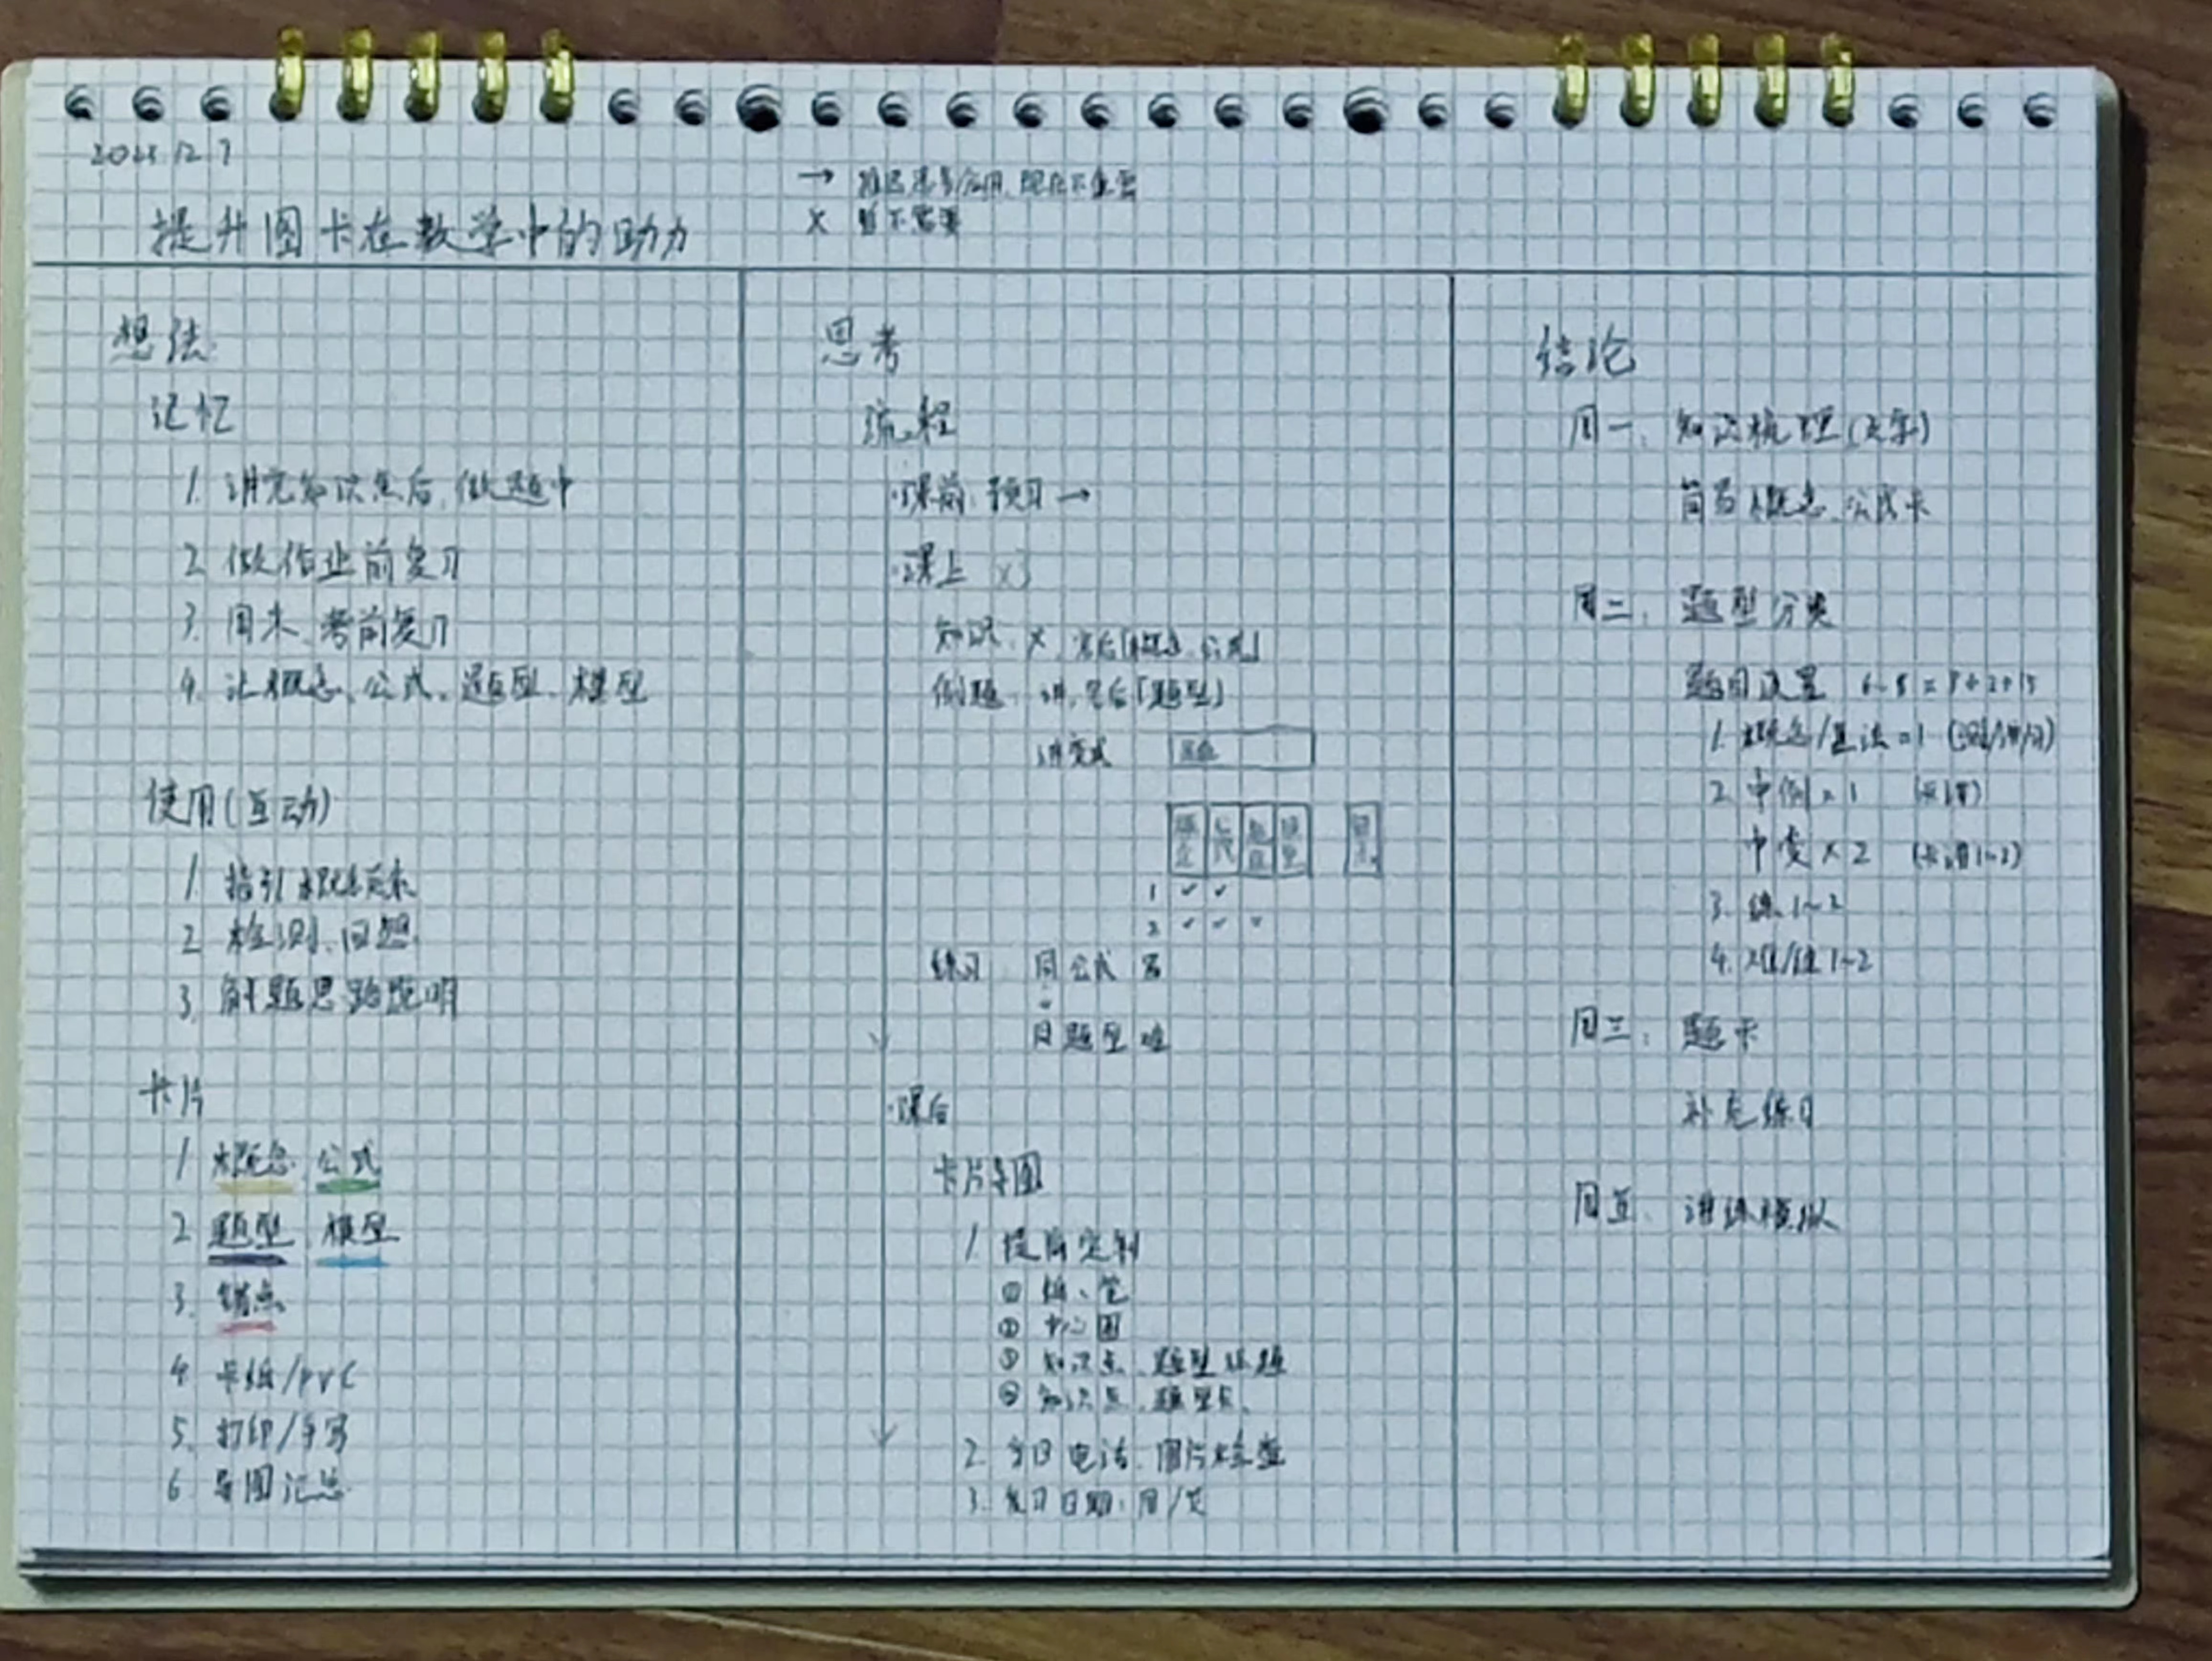 提升图卡在数学中的助力
× 暂不需要
想法
记忆
1. 讲完知识点后, 做题中
2. 做作业前复习
3. 周末、考前复习
4. 让概念、公式、题型、模型
使用(互动)
1. 指引概念关系
2. 检测、回想
3. 解题思路说明
卡片
1 概念 公式
2 题型 模型
3. 错点
4 卡纸/PVC
5. 打印/手写
6 导图汇总
思考
流程
·课前: 预习 →
·课上 ×3
知识: ×, 完后「概念、公式」
例题: 讲, 完后「题型」
讲变式
1 ✓ ✓
2 ✓ ✓
练习: 同公式
同题型
·课后
卡片导图
1. 提前定制
① 纸、笔
② 中心图
③ 知识点、题型标题
④ 知识点、题型卡
2. 电话、图片检查
3. 复习日期: 周/页
结论
周一: 知识梳理
概念、公式卡
周二: 题型分类
题目设置
1. 概念/算法
2. 中例×1
中变×2
3. 练1~2
4. 1~2
周三: 题卡
补充练习
周五: 讲练模拟